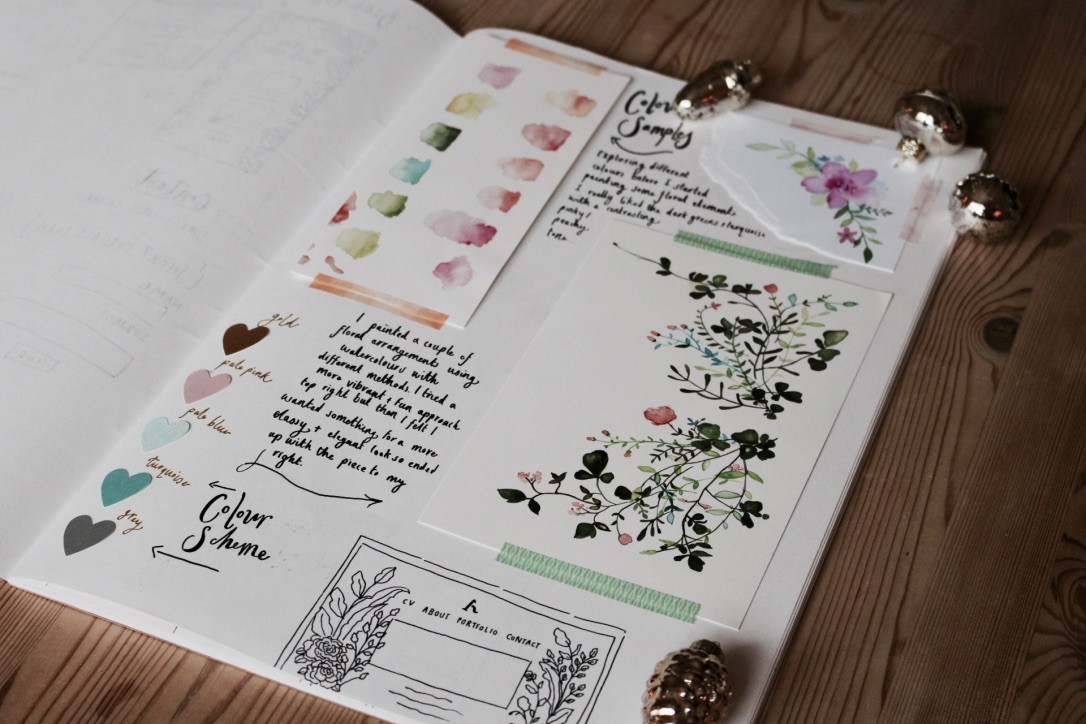 Colour
Samples
Exploring different
colours before I started
painting some floral elements
I really liked the dark greens + turquoise
with a contrasting
pinky/
peachy
tone.
I painted a couple of
floral arrangements using
watercolours with
different methods. I tried a
more vibrant + fun approach
top right but then I felt I
wanted something for a more
classy + elegant look so ended
up with the piece to my
right.
gold
pale pink
pale blue
turquoise
grey
Colour
Scheme
CV ABOUT PORTFOLIO CONTACT